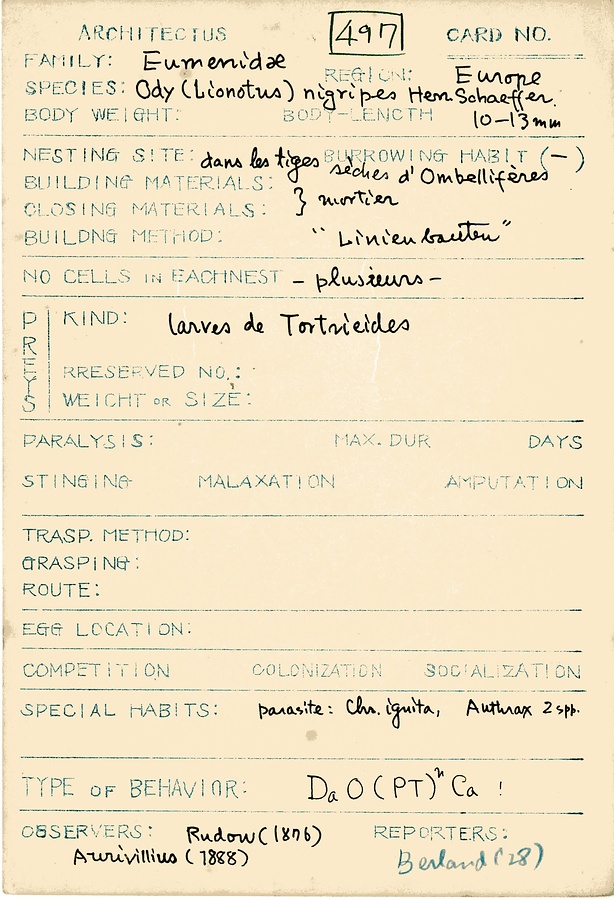 ARCHITECTUS 497 CARD NO.
FAMILY: Eumenidæ REGION: Europe
SPECIES: Ody (Lionotus) nigripes Herr. Schaeffer.
BODY WEIGHT: BODY-LENGTH 10-13mm
NESTING SITE: dans les tiges sèches d'Ombellifères BURROWING HABIT (-)
BUILDING MATERIALS:
CLOSING MATERIALS: } mortier
BUILDNG METHOD: "Linienbauten"
NO CELLS IN EACHNEST - plusieurs -
PREYS KIND: larves de Tortricides
RRESERVED NO.:
WEICHT OR SIZE:
PARALYSIS: MAX. DUR DAYS
STINGING MALAXATION AMPUTATION
TRASP. METHOD:
GRASPING:
ROUTE:
EGG LOCATION:
COMPETITION COLONIZATION SOCIALIZATION
SPECIAL HABITS: parasite: Chr. ignita, Anthrax 2 spp.
TYPE OF BEHAVIOR: Da O (PT)ⁿ Ca !
OBSERVERS: Rudow (1876) REPORTERS:
Aurivillius (1888) Berland ('28)